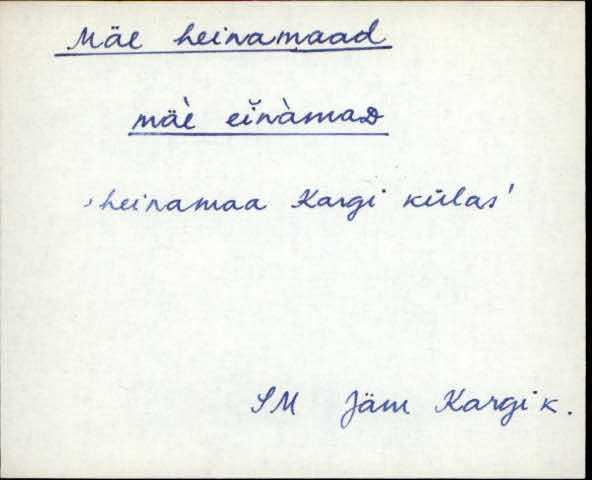 Mäe heinamaad
mäè eĭnàmaD
'heinamaa Kargi külas'
SM Jäm Kargi k.